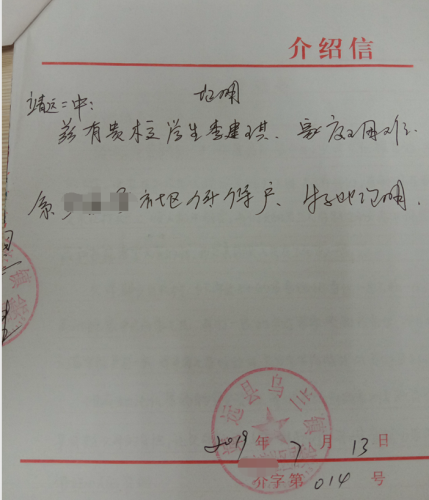 介绍信
证明
靖远二中：
兹有贵校学生李建琪、家庭困难、
系 社区低保户、特此证明.
靖远县乌兰镇
2019年7月13日
介字第014号